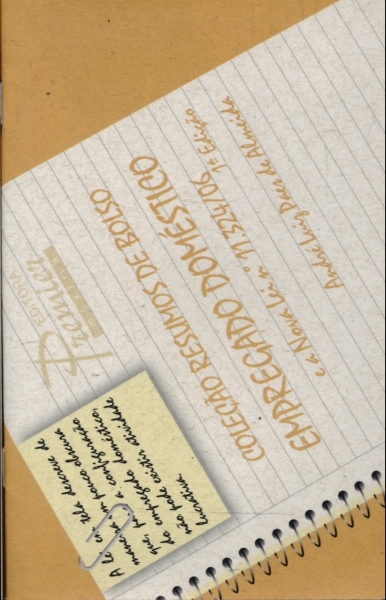 EDITORA
Premier
COLEÇÃO RESUMOS DE BOLSO
EMPREGADO DOMÉSTICO
e a Nova Lei nº 11.324/06 1ª Edição
André Luiz Paes de Almeida
A lei em tela descreve de
maneira um pouco obscura
que, para a configuração
do empregado doméstico,
não pode existir atividade
lucrativa.